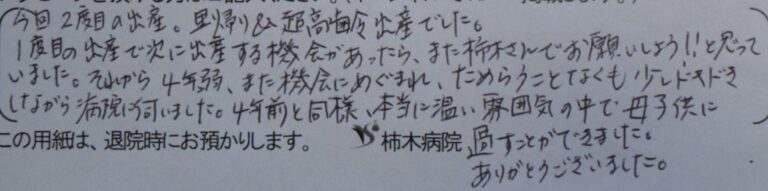 今回2度目の出産。里帰り&超高齢出産でした。
1度目の出産で次に出産する機会があったら、また柿木さんでお願いしよう!!と思って
いました。それから4年弱、また機会にめぐまれ、ためらうことなくも少しドキドキ
しながら病院に伺いました。4年前と同様、本当に温い雰囲気の中で母子供に
過すことができました。
ありがとうございました。
この用紙は、退院時にお預かりします。 柿木病院